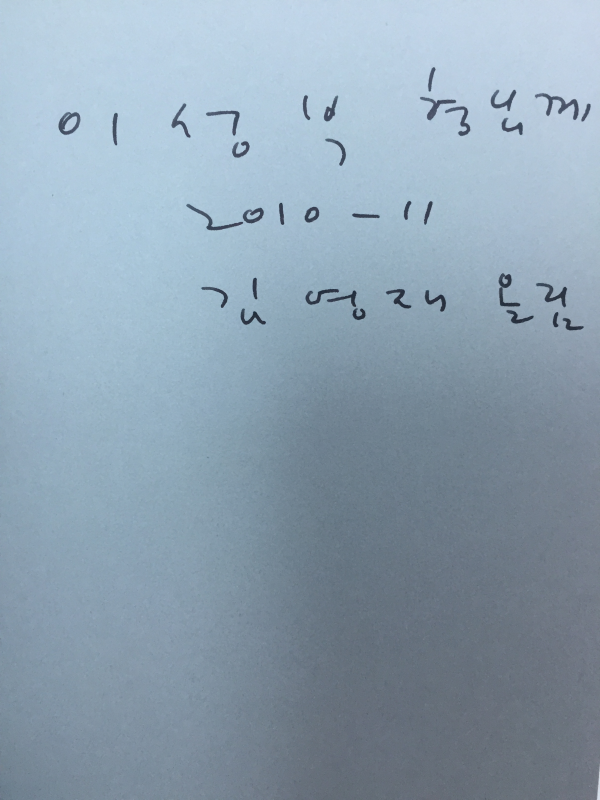 이 형님께
2010 - 11
김 영재 올림